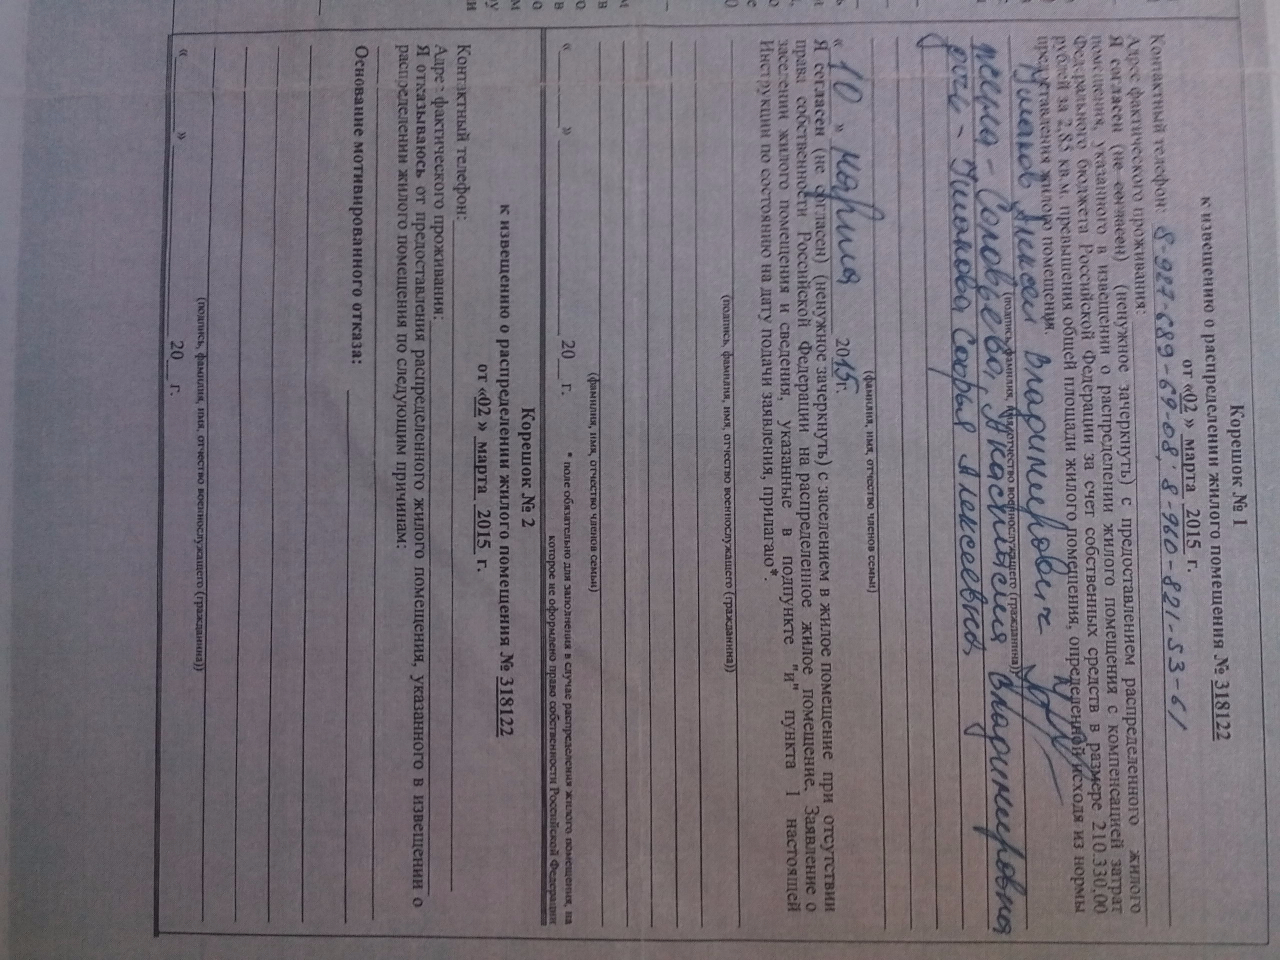 Корешок № 1
к извещению о распределении жилого помещения № 318122
от «02 » марта 2015 г.
Контактный телефон: 8-927-689-69-08; 8-960-821-53-61
Адрес фактического проживания:
Я согласен (не согласен) (ненужное зачеркнуть) с предоставлением распределенного жилого
помещения, указанного в извещении о распределении жилого помещения с компенсацией затрат
Федерального бюджета Российской Федерации за счет собственных средств в размере 210.330,00
рублей за 2,85 кв.м. превышения общей площади жилого помещения, определенной исходя из нормы
предоставления жилого помещения.
Алексей Владимирович
(подпись, фамилия, имя, отчество военнослужащего (гражданина))
Соловьева Анастасия Владимировна
дочь - Софья Алексеевна
(фамилия, имя, отчество членов семьи)
« 10 » марта 2015г.
Я согласен (не согласен) (ненужное зачеркнуть) с заселением в жилое помещение при отсутствии
права собственности Российской Федерации на распределенное жилое помещение. Заявление о
заселении жилого помещения и сведения, указанные в подпункте "и" пункта 1 настоящей
Инструкции по состоянию на дату подачи заявления, прилагаю*.
(подпись, фамилия, имя, отчество военнослужащего (гражданина))
(фамилия, имя, отчество членов семьи)
« » 20 г.
* поле обязательно для заполнения в случае распределения жилого помещения, на
которое не оформлено право собственности Российской Федерации
Корешок № 2
к извещению о распределении жилого помещения № 318122
от «02 » марта 2015 г.
Контактный телефон:
Адрес фактического проживания:
Я отказываюсь от предоставления распределенного жилого помещения, указанного в извещении о
распределении жилого помещения по следующим причинам:
Основание мотивированного отказа:
(подпись, фамилия, имя, отчество военнослужащего (гражданина))
« » 20 г.